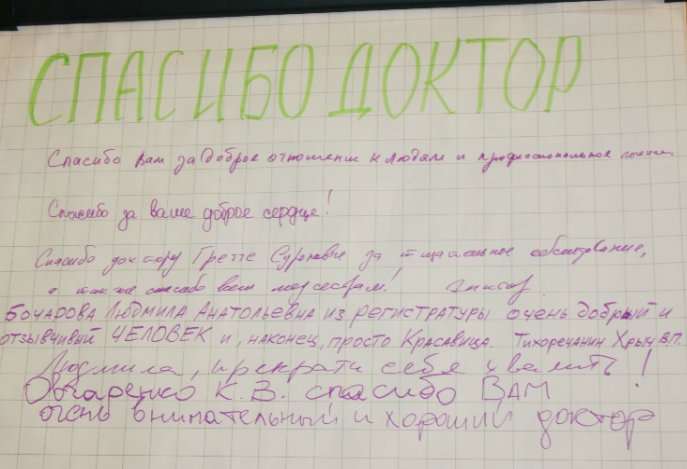 СПАСИБО ДОКТОР
Спасибо Вам за доброе отношение к людям и профессиональное
Спасибо за ваше доброе сердце!
Спасибо доктору Грете Суреновне за тщательное обследование,
а также спасибо всем медсестрам!
БОЧАРОВА ЛЮДМИЛА АНАТОЛЬЕВНА ИЗ РЕГИСТРАТУРЫ ОЧЕНЬ ДОБРЫЙ И
ОТЗЫВЧИВЫЙ ЧЕЛОВЕК И, НАКОНЕЦ, ПРОСТО КРАСАВИЦА. ТИХОРЕЧАНИН ХРЫЧ В.П.
Людмила, прекрати себя хвалить!
Овчаренко К.В. спасибо ВАМ
очень внимательный и хороший доктор